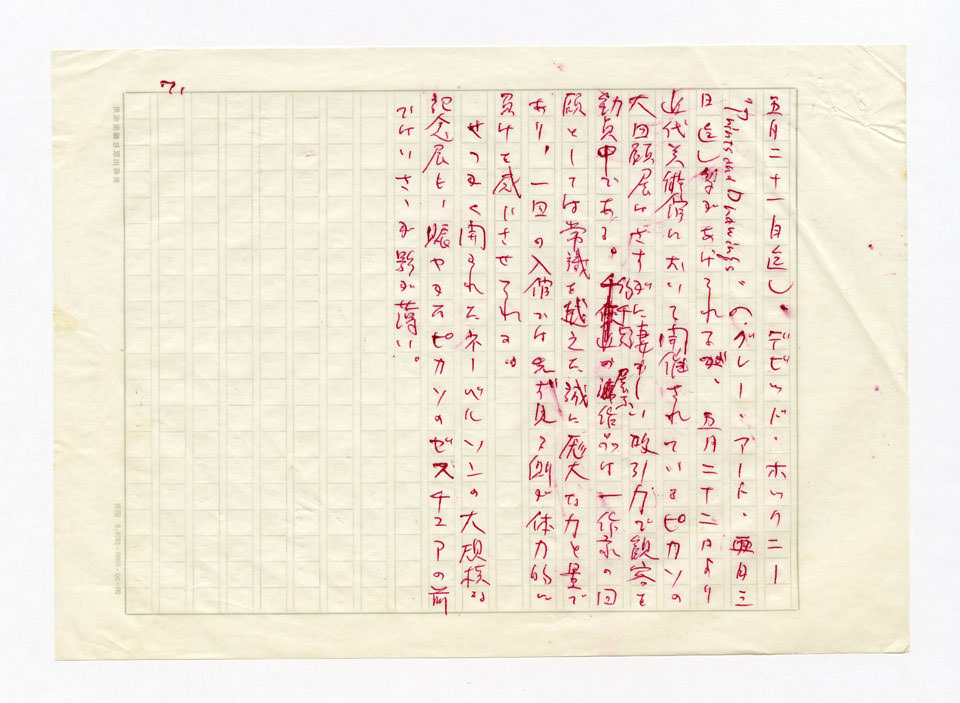 7,
五月二十一日迄し、デビッド・ホックニー
"Prints and Drawings"(ア・グレー・アート・五月三
日迄し等があげられるが、五月二十二日より
近代美術館に於いて開催されているピカソの
大回顧展はさすがに凄まじい吸引力で観客を
動員中である。千点近の作品は一作家の回
顧としては常識を越えた誠に厖大な力と量で
あり、一回の入館では先ず見る側が体力的に
負けを感じさせられる。
せっかく開られたネーベルソンの大規模な
記念展も、賑やかなピカソのゼスチュアの前
ではいささか影が薄い。